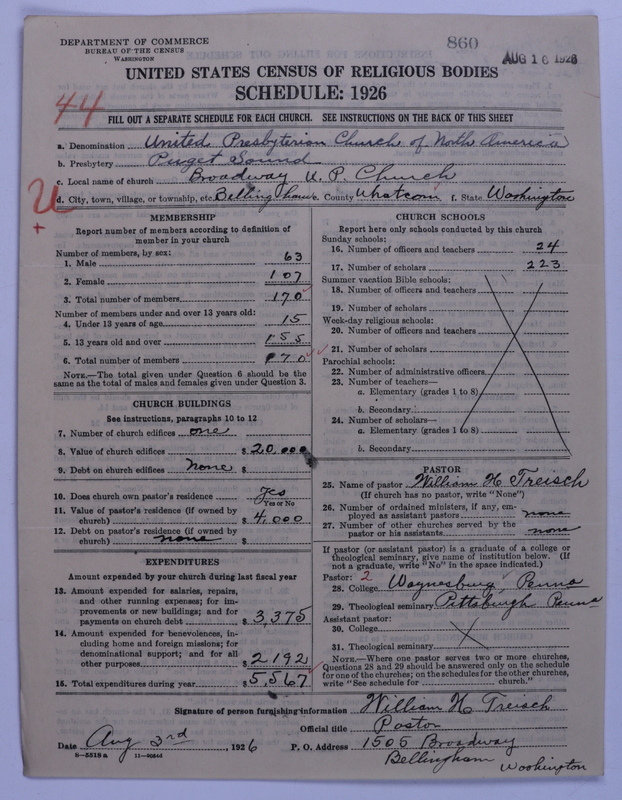 DEPARTMENT OF COMMERCE
BUREAU OF THE CENSUS
WASHINGTON
860
AUG 16 1926
UNITED STATES CENSUS OF RELIGIOUS BODIES
SCHEDULE: 1926
44
FILL OUT A SEPARATE SCHEDULE FOR EACH CHURCH. SEE INSTRUCTIONS ON THE BACK OF THIS SHEET
a. Denomination United Presbyterian Church of North America
b. Presbytery Puget Sound
c. Local name of church Broadway U. P. Church
U
+
d. City, town, village, or township, etc. Bellingham e. County Whatcom f. State Washington
MEMBERSHIP
Report number of members according to definition of
member in your church
Number of members, by sex:
1. Male 63
2. Female 107
3. Total number of members 170
Number of members under and over 13 years old:
4. Under 13 years of age 15
5. 13 years old and over 155
6. Total number of members 170
NOTE.—The total given under Question 6 should be
same as the total of males and females given under Question 3.
CHURCH BUILDINGS
See instructions, paragraphs 10 to 12
7. Number of church edifices one
8. Value of church edifices $20,000
9. Debt on church edifices none $
10. Does church own pastor's residence Yes
Yes or No
11. Value of pastor's residence (if owned by
church) $4,000
12. Debt on pastor's residence (if owned by
church) none $
EXPENDITURES
Amount expended by your church during last fiscal year
13. Amount expended for salaries, repairs,
and other running expenses; for im-
provements or new buildings; and for
payments on church debt $3,375
14. Amount expended for benevolences, in-
cluding home and foreign missions; for
denominational support; and for all
other purposes $2192
15. Total expenditures during year $5,567
CHURCH SCHOOLS
Report here only schools conducted by this church
Sunday schools:
16. Number of officers and teachers 24
17. Number of scholars 223
Summer vacation Bible schools:
18. Number of officers and teachers
19. Number of scholars
Week-day religious schools:
20. Number of officers and teachers
21. Number of scholars
Parochial schools:
22. Number of administrative officers
23. Number of teachers—
a. Elementary (grades 1 to 8)
b. Secondary
24. Number of scholars—
a. Elementary (grades 1 to 8)
b. Secondary
PASTOR
25. Name of pastor William H Treisch
(If church has no pastor, write "None")
26. Number of ordained ministers, if any, em-
ployed as assistant pastors none
27. Number of other churches served by the
pastor or his assistants none
If pastor (or assistant pastor) is a graduate of a college or
theological seminary, give name of institution below. (If
not a graduate, write "No" in the space indicated.)
Pastor: 2
28. College Waynesburg, Penna
29. Theological seminary Pittsburgh Penna
Assistant pastor:
30. College
31. Theological seminary
NOTE.—Where one pastor serves two or more churches,
Questions 28 and 29 should be answered only on the schedule
for one of the churches; on the schedules for the other churches,
write "See schedule for church."
Signature of person furnishing information William H Treisch
Official title Pastor
Date Aug 3rd, 1926 P. O. Address 1505 Broadway
8—5518a
Bellingham Washington